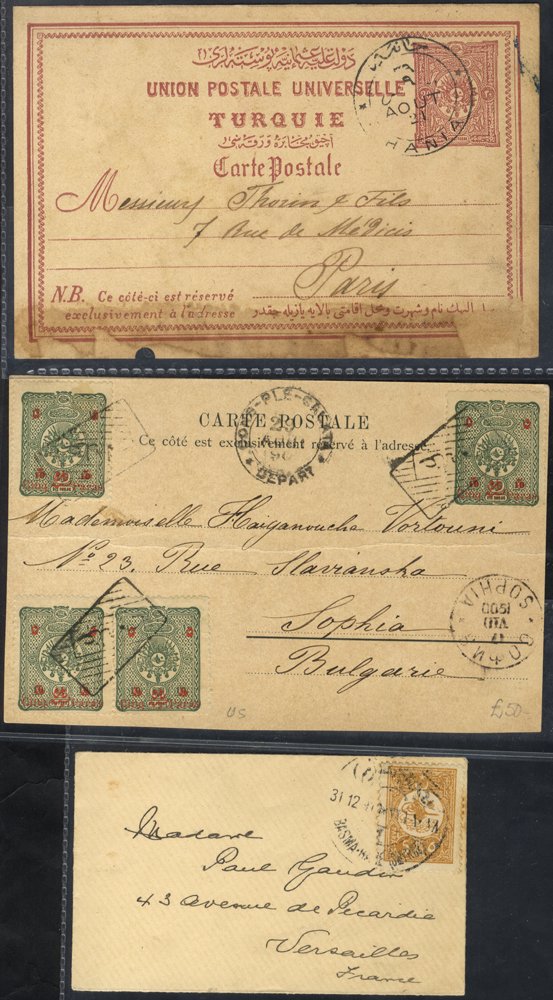 دولت عليه عثمانيه پوسته لری
UNION POSTALE UNIVERSELLE
TURQUIE
آچيق مخابره ورقه سی
Carte Postale
AOUT
HANIA
Messieurs Thorin & Fils
7 Rue de Médicis
Paris
N.B. Ce côté-ci est réservé
exclusivement à l'adresse
CARTE POSTALE
Ce côté est exclusivement réservé à l'adresse
DEPART
Mademoiselle Haïganouche Vortouni
No 23, Rue Slavianska
Sophia
Bulgarie
SOPHIA
VII
1900
СОФИЯ
US
£50-
31 12
Madame
Paul Gaudin
43 avenue de Picardie
Versailles
France